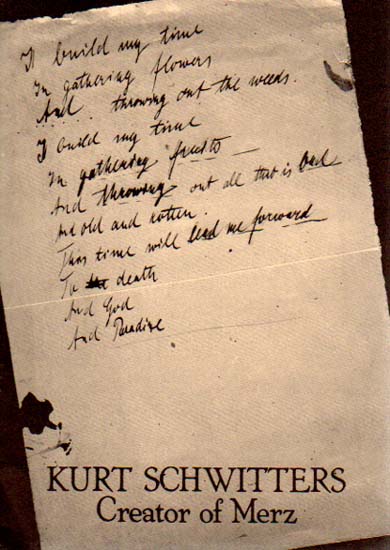 I build my time
In gathering flowers
And throwing out the weeds.
I build my time
In gathering fruits
And throwing out all that is bad
And old and rotten.
This time will lead me forward
To death
And God
And Paradise
KURT SCHWITTERS
Creator of Merz